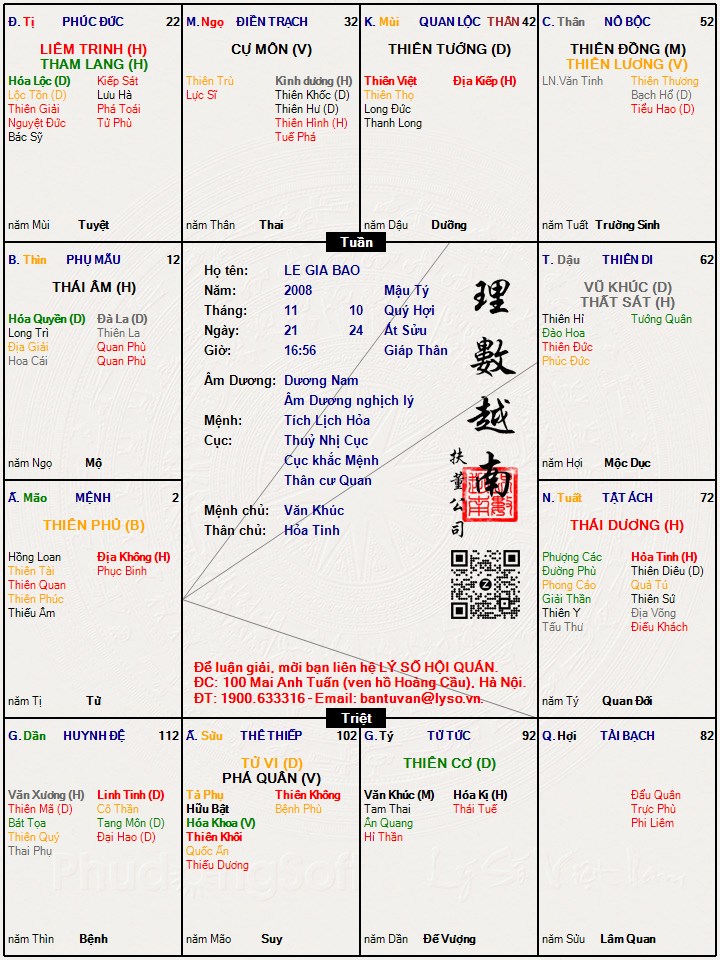 Đ. Tị PHÚC ĐỨC 22
LIÊM TRINH (H)
THAM LANG (H)
Hóa Lộc (D) Kiếp Sát
Lộc Tồn (D) Lưu Hà
Thiên Giải Phá Toái
Nguyệt Đức Tử Phù
Bác Sỹ
năm Mùi Tuyệt
M. Ngọ ĐIỀN TRẠCH 32
CỰ MÔN (V)
Thiên Trù Kình dương (H)
Lực Sĩ Thiên Khốc (D)
Thiên Hư (D)
Thiên Hình (H)
Tuế Phá
năm Thân Thai
K. Mùi QUAN LỘC THÂN 42
THIÊN TƯỚNG (D)
Thiên Việt Địa Kiếp (H)
Thiên Thọ
Long Đức
Thanh Long
năm Dậu Dưỡng
C. Thân NÔ BỘC 52
THIÊN ĐỒNG (M)
THIÊN LƯƠNG (V)
LN.Văn Tinh Thiên Thương
Bạch Hổ (D)
Tiểu Hao (D)
năm Tuất Trường Sinh
Tuần
B. Thìn PHỤ MẪU 12
THÁI ÂM (H)
Hóa Quyền (D) Đà La (D)
Long Trì Thiên La
Địa Giải Quan Phù
Hoa Cái Quan Phủ
năm Ngọ Mộ
Họ tên: LE GIA BAO
Năm: 2008 Mậu Tý
Tháng: 11 10 Quý Hợi
Ngày: 21 24 Ất Sửu
Giờ: 16:56 Giáp Thân
Âm Dương: Dương Nam
Âm Dương nghịch lý
Mệnh: Tích Lịch Hỏa
Cục: Thuỷ Nhị Cục
Cục khắc Mệnh
Thân cư Quan
Mệnh chủ: Văn Khúc
Thân chủ: Hỏa Tinh
理數越南
扶董公司
Để luận giải, mời bạn liên hệ LÝ SỐ HỘI QUÁN.
ĐC: 100 Mai Anh Tuấn (ven hồ Hoàng Cầu), Hà Nội.
ĐT: 1900.633316 - Email: bantuvan@lyso.vn.
T. Dậu THIÊN DI 62
VŨ KHÚC (D)
THẤT SÁT (H)
Thiên Hỉ Tướng Quân
Đào Hoa
Thiên Đức
Phúc Đức
năm Hợi Mộc Dục
Ấ. Mão MỆNH 2
THIÊN PHỦ (B)
Hồng Loan Địa Không (H)
Thiên Tài Phục Binh
Thiên Quan
Thiên Phúc
Thiếu Âm
năm Tị Tử
N. Tuất TẬT ÁCH 72
THÁI DƯƠNG (H)
Phượng Các Hỏa Tinh (H)
Đường Phù Thiên Diêu (D)
Phong Cáo Quả Tú
Giải Thần Thiên Sứ
Thiên Y Địa Võng
Tấu Thư Điếu Khách
năm Tý Quan Đới
Triệt
G. Dần HUYNH ĐỆ 112
Văn Xương (H) Linh Tinh (D)
Thiên Mã (D) Cô Thần
Bát Tọa Tang Môn (D)
Thiên Quý Đại Hao (D)
Thai Phụ
năm Thìn Bệnh
Ấ. Sửu THÊ THIẾP 102
TỬ VI (D)
PHÁ QUÂN (V)
Tả Phụ Thiên Không
Hữu Bật Bệnh Phù
Hóa Khoa (V)
Thiên Khôi
Quốc Ấn
Thiếu Dương
năm Mão Suy
G. Tý TỬ TỨC 92
THIÊN CƠ (D)
Văn Khúc (M) Hóa Kị (H)
Tam Thai Thái Tuế
Ân Quang
Hỉ Thần
năm Dần Đế Vượng
Q. Hợi TÀI BẠCH 82
Đẩu Quân
Trực Phù
Phi Liêm
năm Sửu Lâm Quan